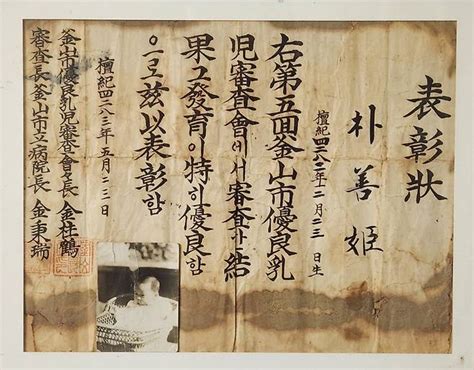 表彰狀
朴善姬
檀紀四二八二年一二月二三日生
右第五回釜山市優良乳
児審査會에서審査한結
果그發育이特히優良함
으로玆以表彰함
檀紀四二八三年五月二三日
釜山市優良乳児審査會長 金柱鶴
審査長釜山市立病院長 金秉瑞